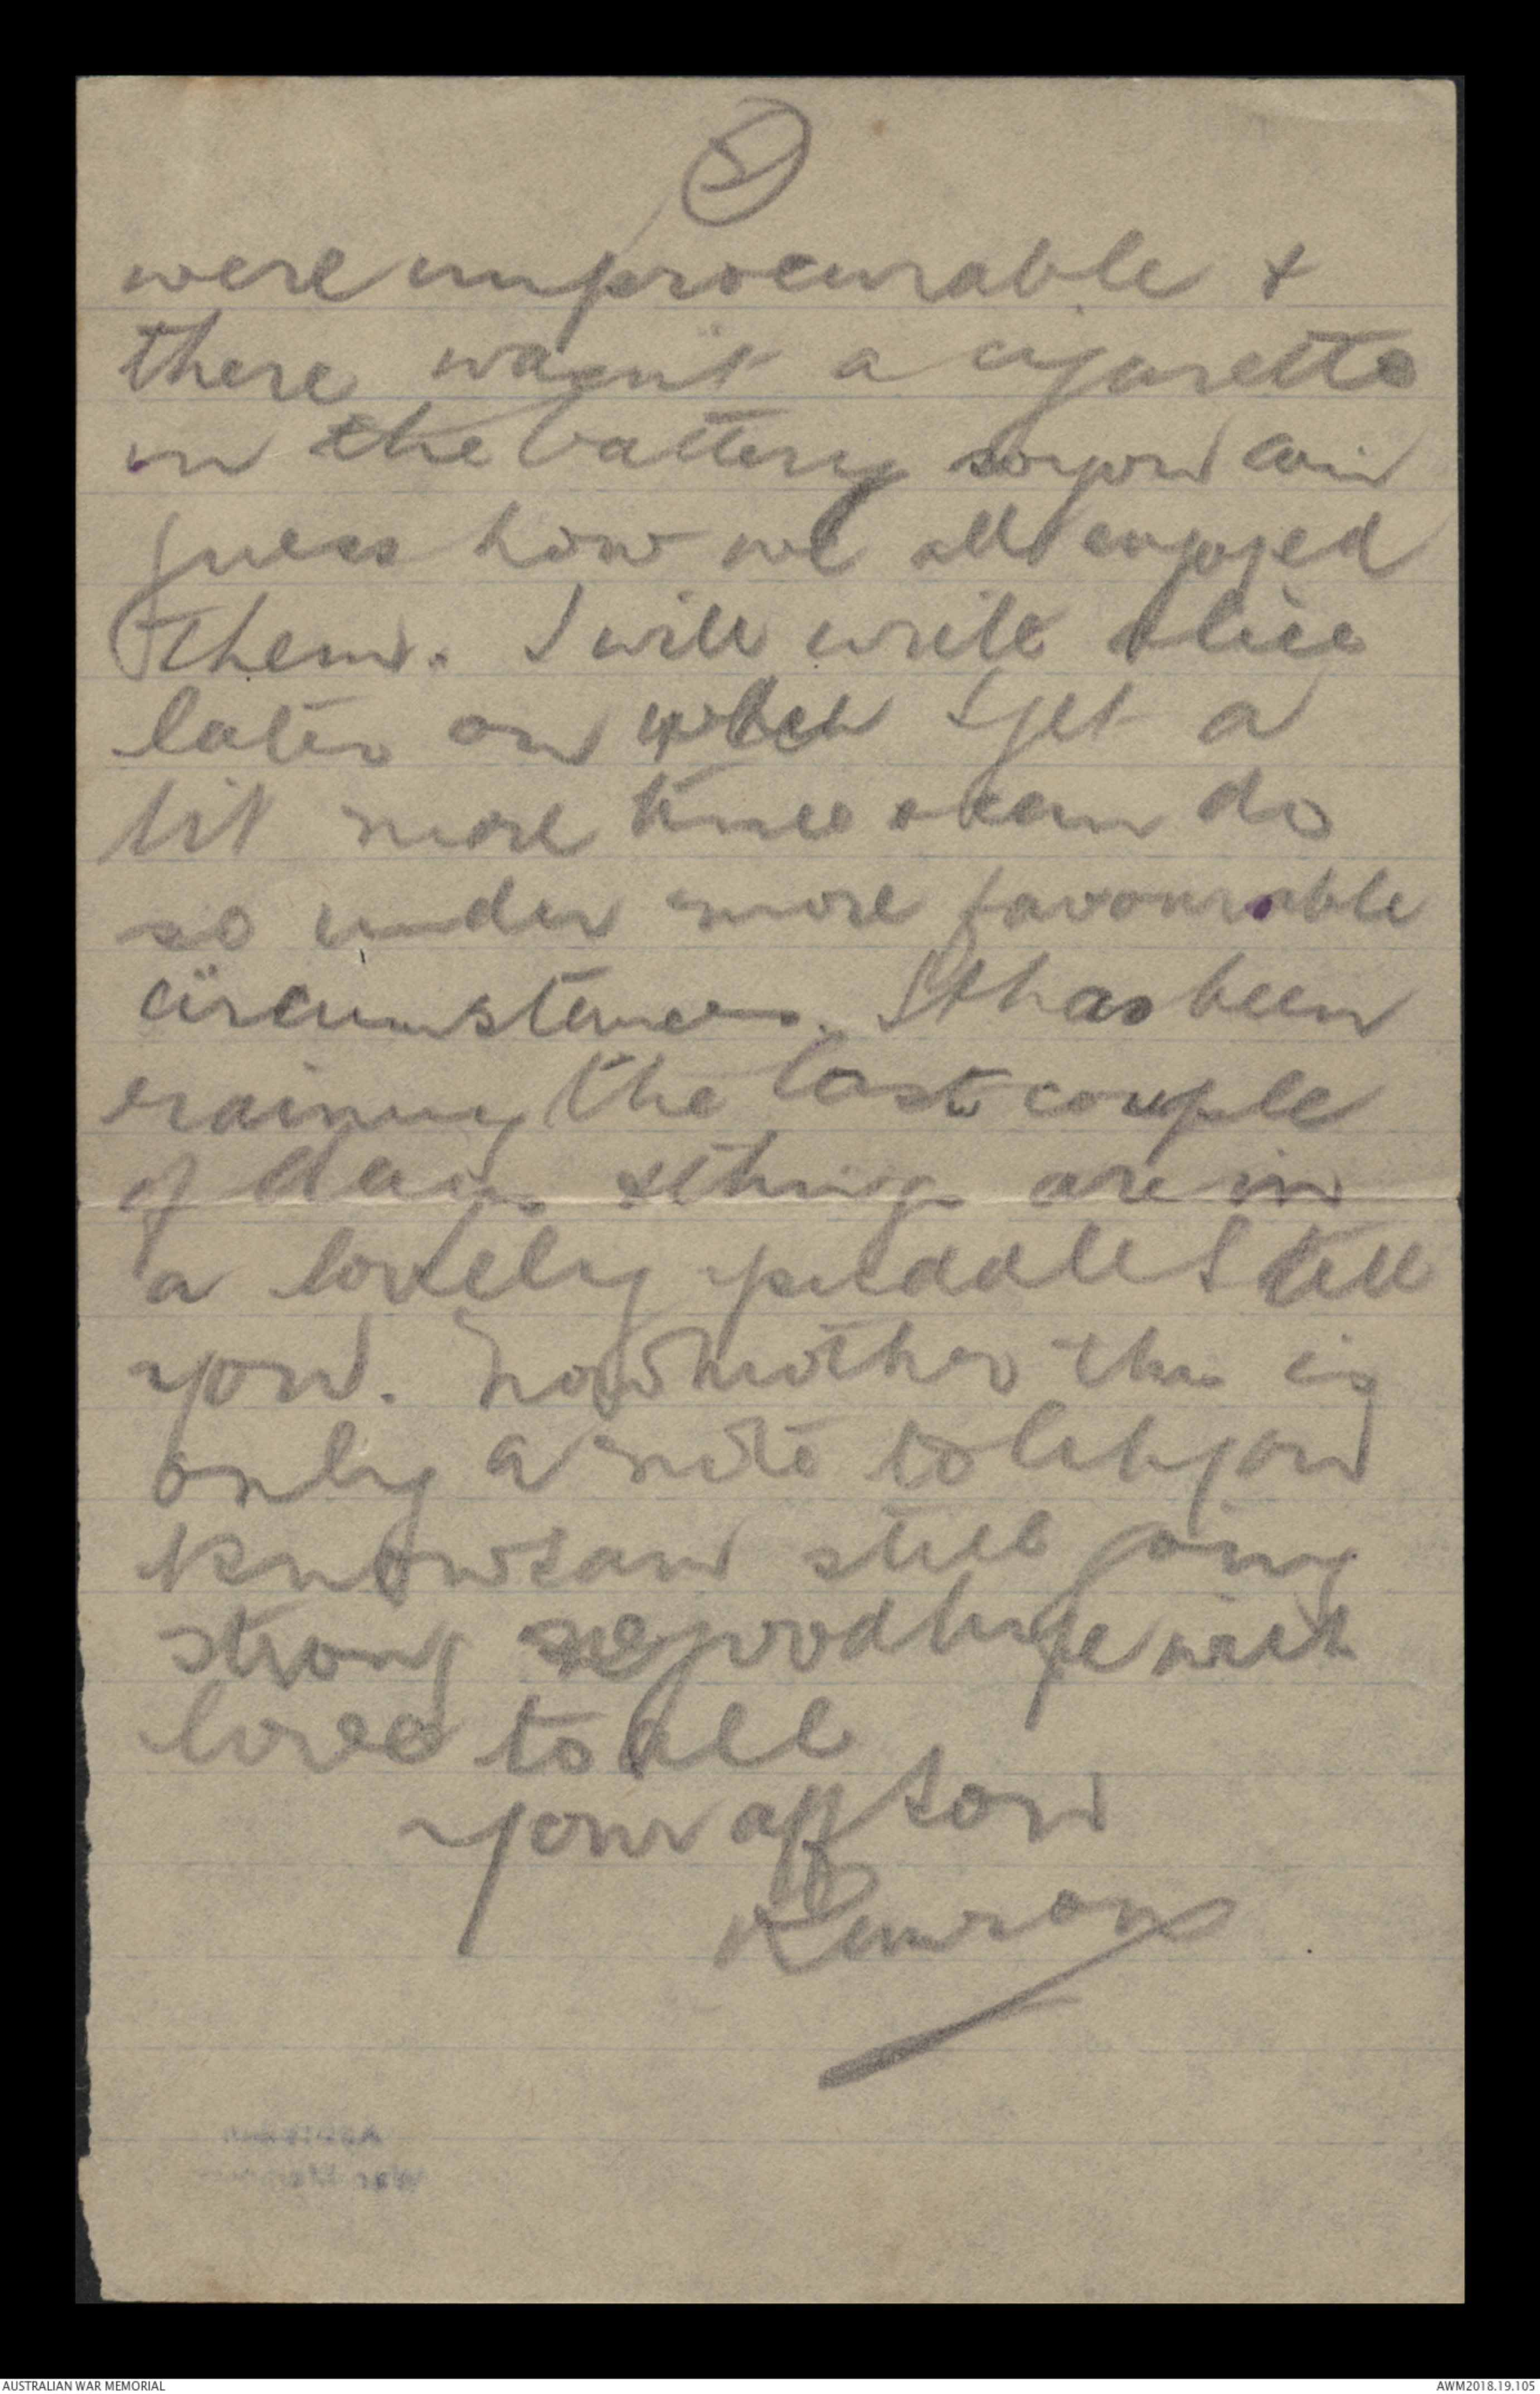 were unprocurable +
there wasn't a cigarette
in the battery so you can
guess how we all enjoyed
them. I will write Alice
later on when I get a
bit more time & can do
so under more favourable
circumstances. It has been
raining the last couple
of days & things are in
a lovely puddle I tell
you. Now Mother this is
only a note to let you
know I am still going
strong & good hope with
love to all
Your aff son